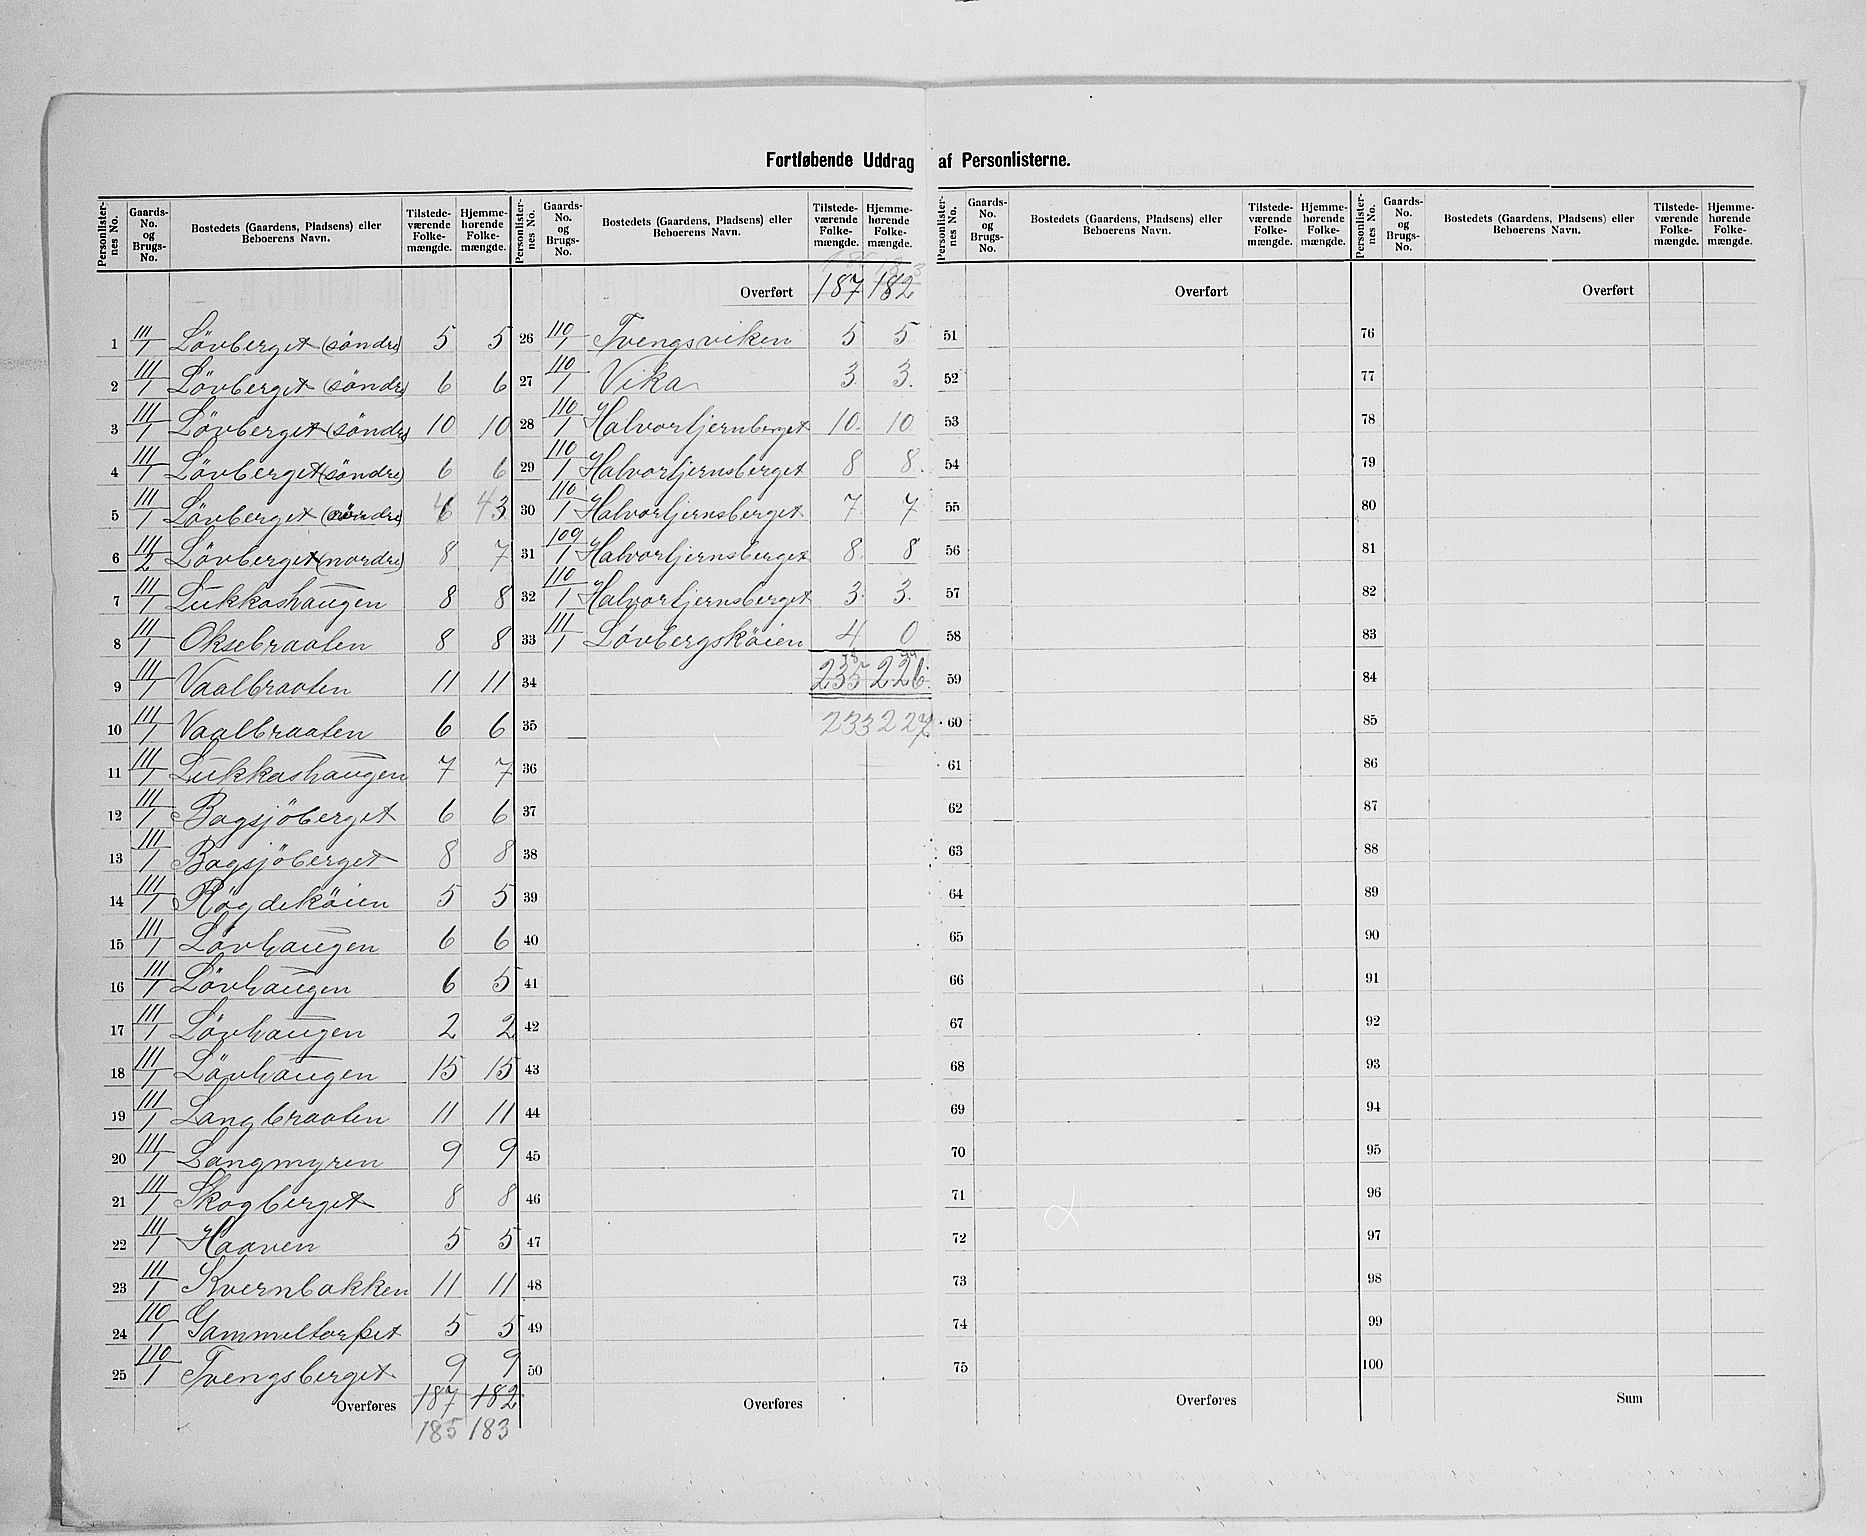 Fortløbende Uddrag af Personlisterne.
Personlister-nes No. | Gaards-No. og Brugs-No. | Bostedets (Gaardens, Pladsens) eller Beboerens Navn. | Tilstede-værende Folke-mængde. | Hjemme-hørende Folke-mængde.
1 111/1 Lövberget (söndre) 5 5
2 111/1 Lövberget (söndre) 6 6
3 111/1 Lövberget (söndre) 10 10
4 111/1 Lövberget (söndre) 6 6
5 111/1 Lövberget (söndre) 6 4 3 4
6 111/2 Lövberget (nordre) 8 7
7 111/1 Lukkashaugen 8 8
8 111/1 Oksebraaten 8 8
9 111/1 Vaalbraaten 11 11
10 111/1 Vaalbraaten 6 6
11 111/1 Lukkashaugen 7 7
12 111/1 Bagsjöberget 6 6
13 111/1 Bagsjöberget 8 8
14 111/1 Rögdeköien 5 5
15 111/1 Lövhaugen 6 6
16 111/1 Lövhaugen 6 5
17 111/1 Lövhaugen 2 2
18 111/1 Lövhaugen 15 15
19 111/1 Langbraaten 11 11
20 111/1 Langmyren 9 9
21 111/1 Skogberget 8 8
22 111/1 Haaven 5 5
23 111/1 Kvernbakken 11 11
24 110/1 Gammeltorpet 5 5
25 110/1 Tvengsberget 9 9
Overføres 187 182
185 183
Personlister-nes No. | Gaards-No. og Brugs-No. | Bostedets (Gaardens, Pladsens) eller Beboerens Navn. | Tilstede-værende Folke-mængde. | Hjemme-hørende Folke-mængde.
Overført 187 182
26 110/1 Tvengsviken 5 5
27 110/1 Vika 3 3
28 110/1 Halvortjernberget 10 10
29 110/1 Halvortjernsberget 8 8
30 110/1 Halvortjernsberget 7 7
31 109/1 Halvortjernsberget 8 8
32 110/1 Halvortjernsberget 3 3
33 111/1 Lövbergsköien 4 0
34 235 226
35 233 227
36
37
38
39
40
41
42
43
44
45
46
47
48
49
50
Overføres
Personlister-nes No. | Gaards-No. og Brugs-No. | Bostedets (Gaardens, Pladsens) eller Beboerens Navn. | Tilstede-værende Folke-mængde. | Hjemme-hørende Folke-mængde.
Overført
51
52
53
54
55
56
57
58
59
60
61
62
63
64
65
66
67
68
69
70
71
72
73
74
75
Overføres
Personlister-nes No. | Gaards-No. og Brugs-No. | Bostedets (Gaardens, Pladsens) eller Beboerens Navn. | Tilstede-værende Folke-mængde. | Hjemme-hørende Folke-mængde.
Overført
76
77
78
79
80
81
82
83
84
85
86
87
88
89
90
91
92
93
94
95
96
97
98
99
100
Sum